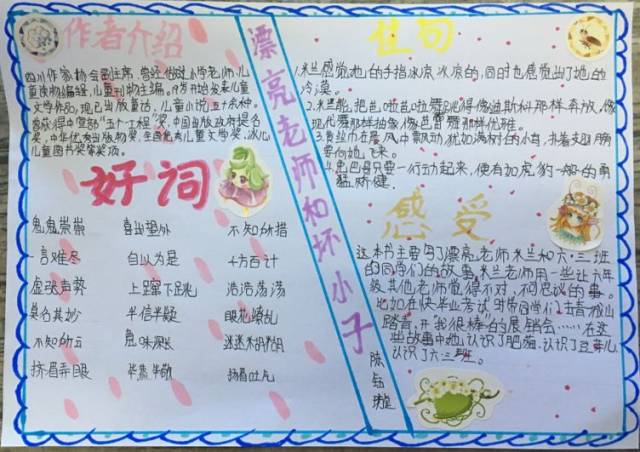 作者介绍
四川作家协会副主席,曾经做过小学老师、儿
童读物编辑、儿童刊物主编。19岁开始发表儿童
文学作品,现已出版童话、儿童小说五十余种。
曾获得中宣部"五个一工程"奖,中国出版政府提名
奖,中华优秀出版物奖,全国优秀儿童文学奖,冰心
儿童图书奖等奖项。
好词
鬼鬼祟祟 喜出望外 不知所措
一言难尽 自以为是 千方百计
虚张声势 上蹿下跳 浩浩荡荡
莫名其妙 半信半疑 眼花缭乱
不知所云 臭味 迷迷糊糊
挤眉弄眼 毕恭毕敬 扬眉吐气
漂亮老师和坏小子
陈
佳句
1.米兰感觉她的手指冰凉冰凉的,同时也感觉出了她的
冷漠。
2.米老把芭啦芭啦舞跳得像迪斯科那样奔放,像
现代舞那样抽象,像芭蕾舞那样优雅。
3.黄丝巾在晨风中飘动,犹如满树的小鸟,扑着翅膀
要向她飞来。
4.巴巴得只要一行动起来,便有如虎豹一般的勇
猛、矫健。
感受
这本书主要写了漂亮老师米兰和六、三班
的同学们的故事,米兰老师用一些让六年
级其他老师觉得不对,不可思议的事。
比如在快毕业考试时带同学们上青
踏青,开"我很棒"的展销会……在这
些故事中她认识了肥猫,认识了豆芽儿
认识了六、三班。